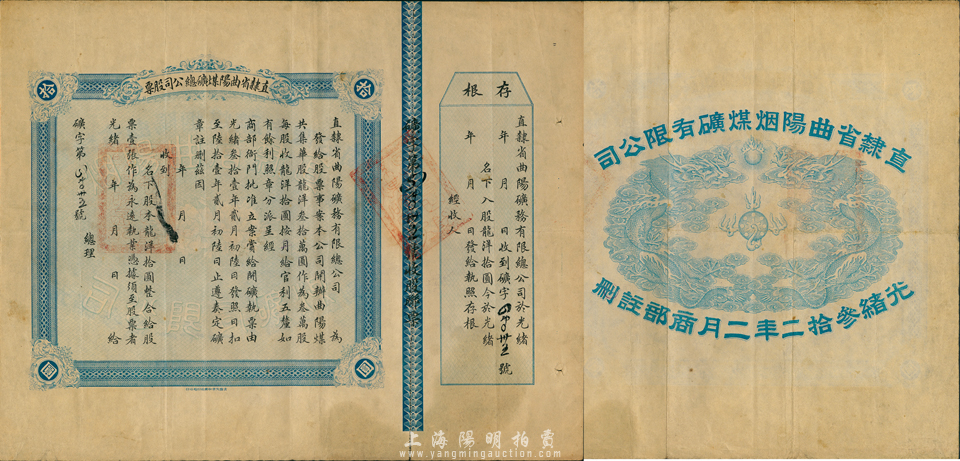 直隸省曲陽煤礦總公司股票
拾
拾
圓
圓
直隸省曲陽礦務有限總公司 為
發給股票事案本公司開辦曲陽煤
共集華股龍洋叁拾萬圓作為叁萬股
每股收龍洋拾圓按月給官利五釐如
有餘利照章分派呈經
商部衙門批准立案賞給開礦執票由
光緒叁拾壹年貳月初陸日發照日扣
至陸拾壹年貳月初陸日止遵奏定礦
章註册茲因
年 月 日
收到
名下股本龍洋拾圓整合給股
票壹張作為永遠執業憑據須至股票者
光緒 年 月 日 給
總理
礦字第 號
存根
直隸省曲陽礦務有限總公司於光緒
年 月 日收到礦字 號
名下入股龍洋拾圓今於光緒
年 月 日發給執照存根
經收人
直隸省曲陽烟煤礦有限公司
光緒參拾二年二月商部註冊
上海陽明拍賣
www.yangmingauction.com